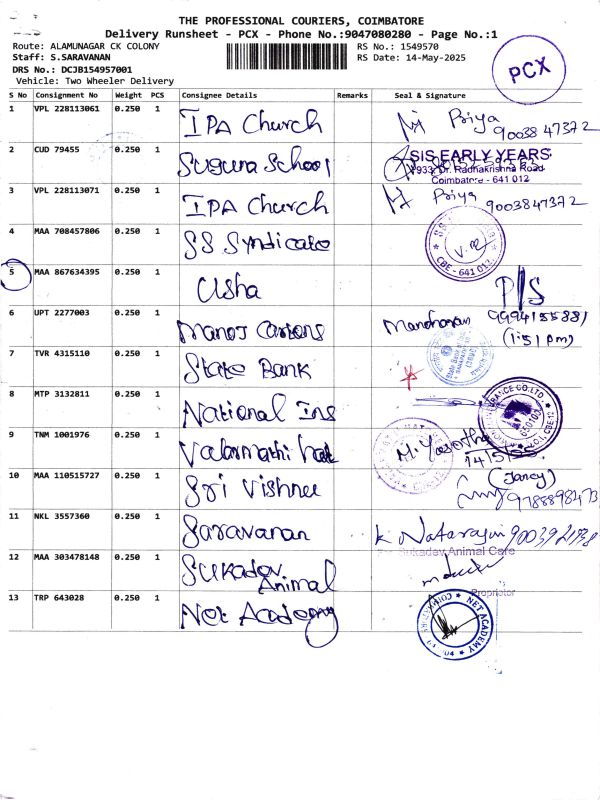 THE PROFESSIONAL COURIERS, COIMBATORE
Delivery Runsheet - PCX - Phone No.:9047080280 - Page No.:1
Route: ALAMUNAGAR CK COLONY
RS No.: 1549570
Staff: S.SARAVANAN
RS Date: 14-May-2025
DRS No.: DCJB154957001
Vehicle: Two Wheeler Delivery
PCX
S No Consignment No Weight PCS Consignee Details Remarks Seal & Signature
1 VPL 228113061 0.250 1 IPA Church Priya 9003847372
2 CUD 79455 0.250 1 Suguna School
SIS EARLY YEARS
933, Dr. Radhakrishna Road
Coimbatore - 641 012
3 VPL 228113071 0.250 1 IPA Church Priya 9003847372
4 MAA 708457806 0.250 1 SS Syndicate
CBE - 641 012
5 MAA 867634395 0.250 1 Usha P/S
6 UPT 2277003 0.250 1 Manoj Cartons Manoharan 9994155881
(1:51 pm)
7 TVR 4315110 0.250 1 State Bank
8 MTP 3132811 0.250 1 National Ins
9 TNM 1001976 0.250 1 Valarmathi M. Yasotha
10 MAA 110515727 0.250 1 Sri Vishnu (Jancy)
9788898473
11 NKL 3557360 0.250 1 Saravanan K Natarajan
12 MAA 303478148 0.250 1 Sukadev Animal
Sukadev Animal Care
Proprietor
13 TRP 643028 0.250 1 Net Academy
NET ACADEMY